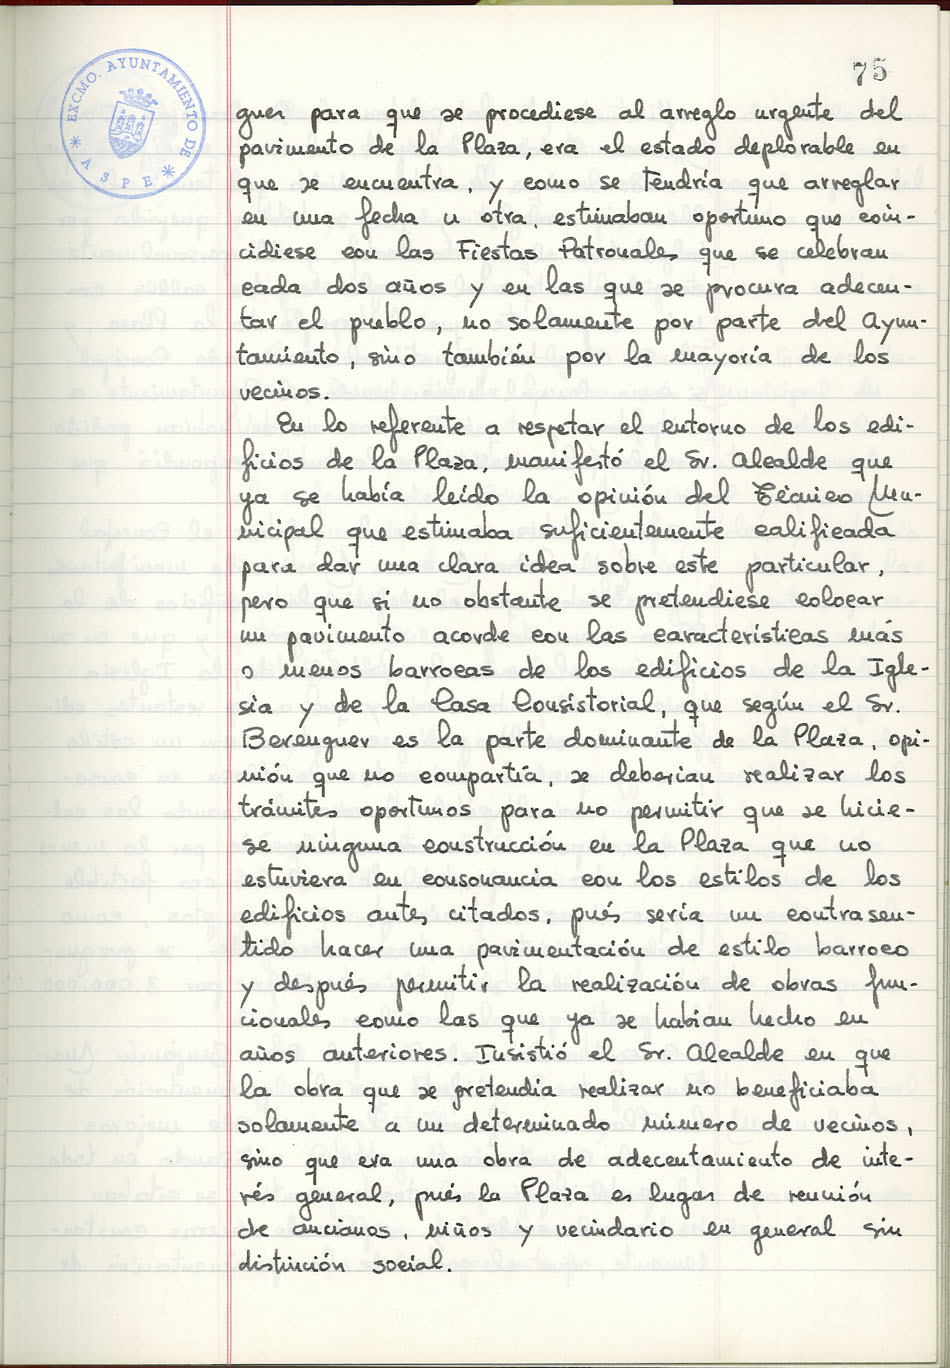 75
EXCMO. AYUNTAMIENTO DE
* ASPE *
guer para que se procediese al arreglo urgente del
pavimento de la Plaza, era el estado deplorable en
que se encuentra, y como se tendría que arreglar
en una fecha u otra, estimaban oportuno que coin-
cidiese con las Fiestas Patronales que se celebran
cada dos años y en las que se procura adecen-
tar el pueblo, no solamente por parte del Ayun-
tamiento, sino también por la mayoría de los
vecinos.
En lo referente a respetar el entorno de los edi-
ficios de la Plaza, manifestó el Sr. Alcalde que
ya se había leído la opinión del Técnico Mu-
nicipal que estimaba suficientemente calificada
para dar una clara idea sobre este particular,
pero que si no obstante se pretendiese colocar
un pavimento acorde con las características más
o menos barrocas de los edificios de la Igle-
sia y de la Casa Consistorial, que según el Sr.
Berenguer es la parte dominante de la Plaza, opi-
nión que no compartía, se deberian realizar los
trámites oportunos para no permitir que se hicie-
se ninguna construcción en la Plaza que no
estuviera en consonancia con los estilos de los
edificios antes citados, pués sería un contrasen-
tido hacer una pavimentación de estilo barroco
y después permitir la realización de obras fun-
cionales como las que ya se habían hecho en
años anteriores. Insistió el Sr. Alcalde en que
la obra que se pretendia realizar no beneficiaba
solamente a un determinado número de vecinos,
sino que era una obra de adecentamiento de inte-
rés general, pués la Plaza es lugar de reunión
de ancianos, niños y vecindario en general sin
distinción social.